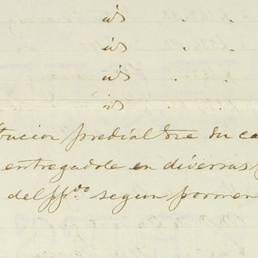 id . .
id . .
id . .
id . .
bucion predial
entregadole en diversas
del pp.do segun pormen